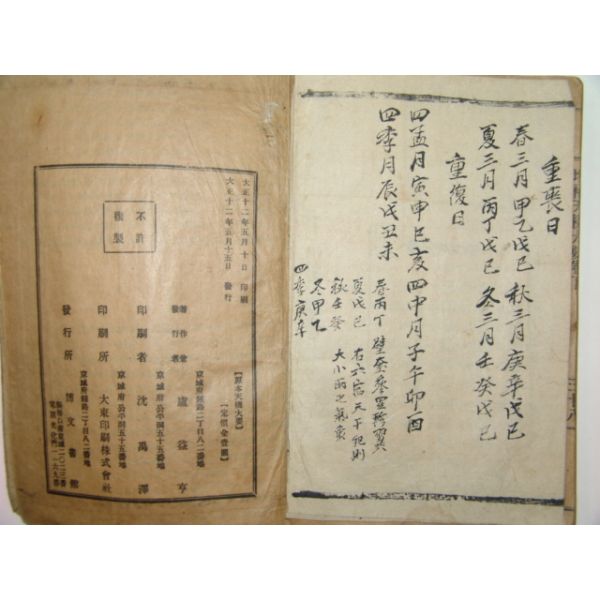 重喪日
春三月甲乙戊己 秋三月庚辛戊己
夏三月丙丁戊己 冬三月壬癸戊己
重復日
四孟月寅申巳亥 四中月子午卯酉
四季月辰戌丑未
春丙丁
夏戊己
秋壬癸 大小雨之氣象
冬甲乙
四季庚辛
大正十二年五月十日 印刷
大正十二年五月十五日 發行
不許
複製
【原本天機大要】
【定價金壹圓】
京城府鍾路二丁目八二番地
著作兼
發行者 盧益亨
京城府公平洞五十五番地
印刷者 沈禹澤
京城府公平洞五十五番地
印刷所 大東印刷株式會社
京城府鍾路二丁目八二番地
發行所 博文書館
振替口座京城二〇二三番
電話光化門一一六九番